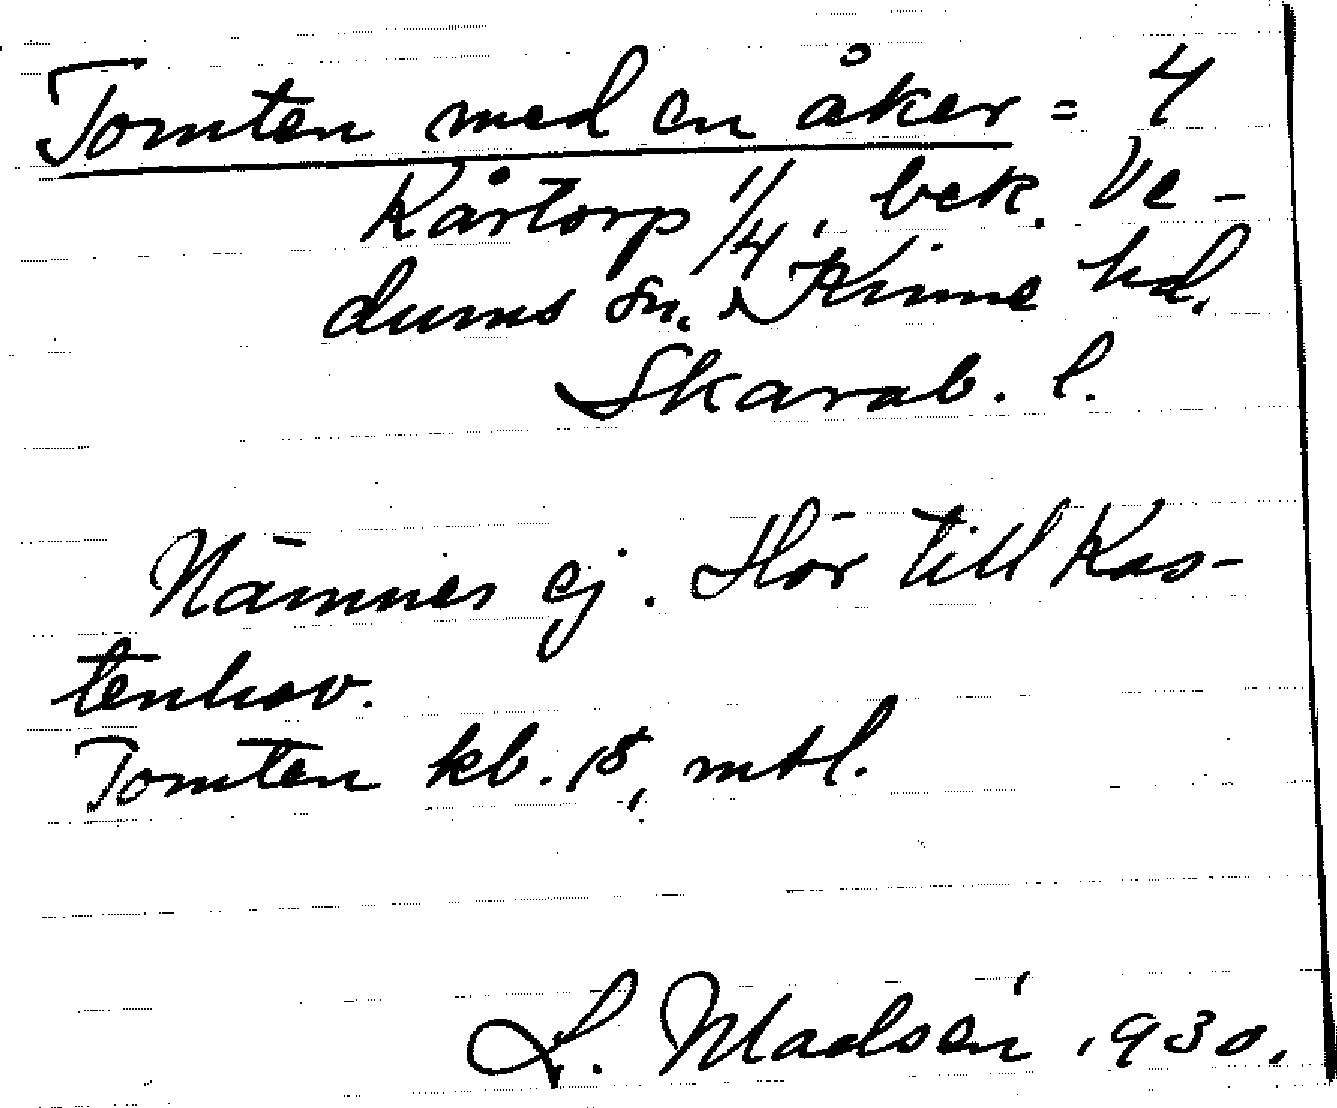 Tomten med en åker = 4
Kårtorp 1/4, bek. Ve-
dums sn. Kinne hd.
Skarab. l.
Nämnes ej. Hör till Kas-
tenhov.
Tomten kb. 1/8, mtl.
L. Madsén 1930.